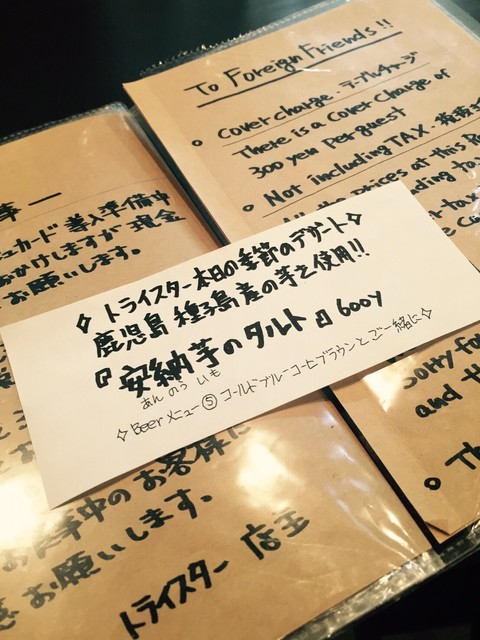 To Foreign Friends!!
Cover charge.テーブルチャージ
There is a Cover Charge of
300 yen per guest
Not including TAX.
prices at this
Sorry for
and th
Th
カード導入準備中
おかけしますが現金
お願いします。
◇トライスター本日の季節のデザート◇
鹿児島種子島産の芋を使用!!
『安納芋のタルト』600y
あんのういも
◇Beerメニュー⑤コールドブルーコーヒーブラウンとご一緒に◇
お食事中のお客様に
お願いします。
トライスター 店主